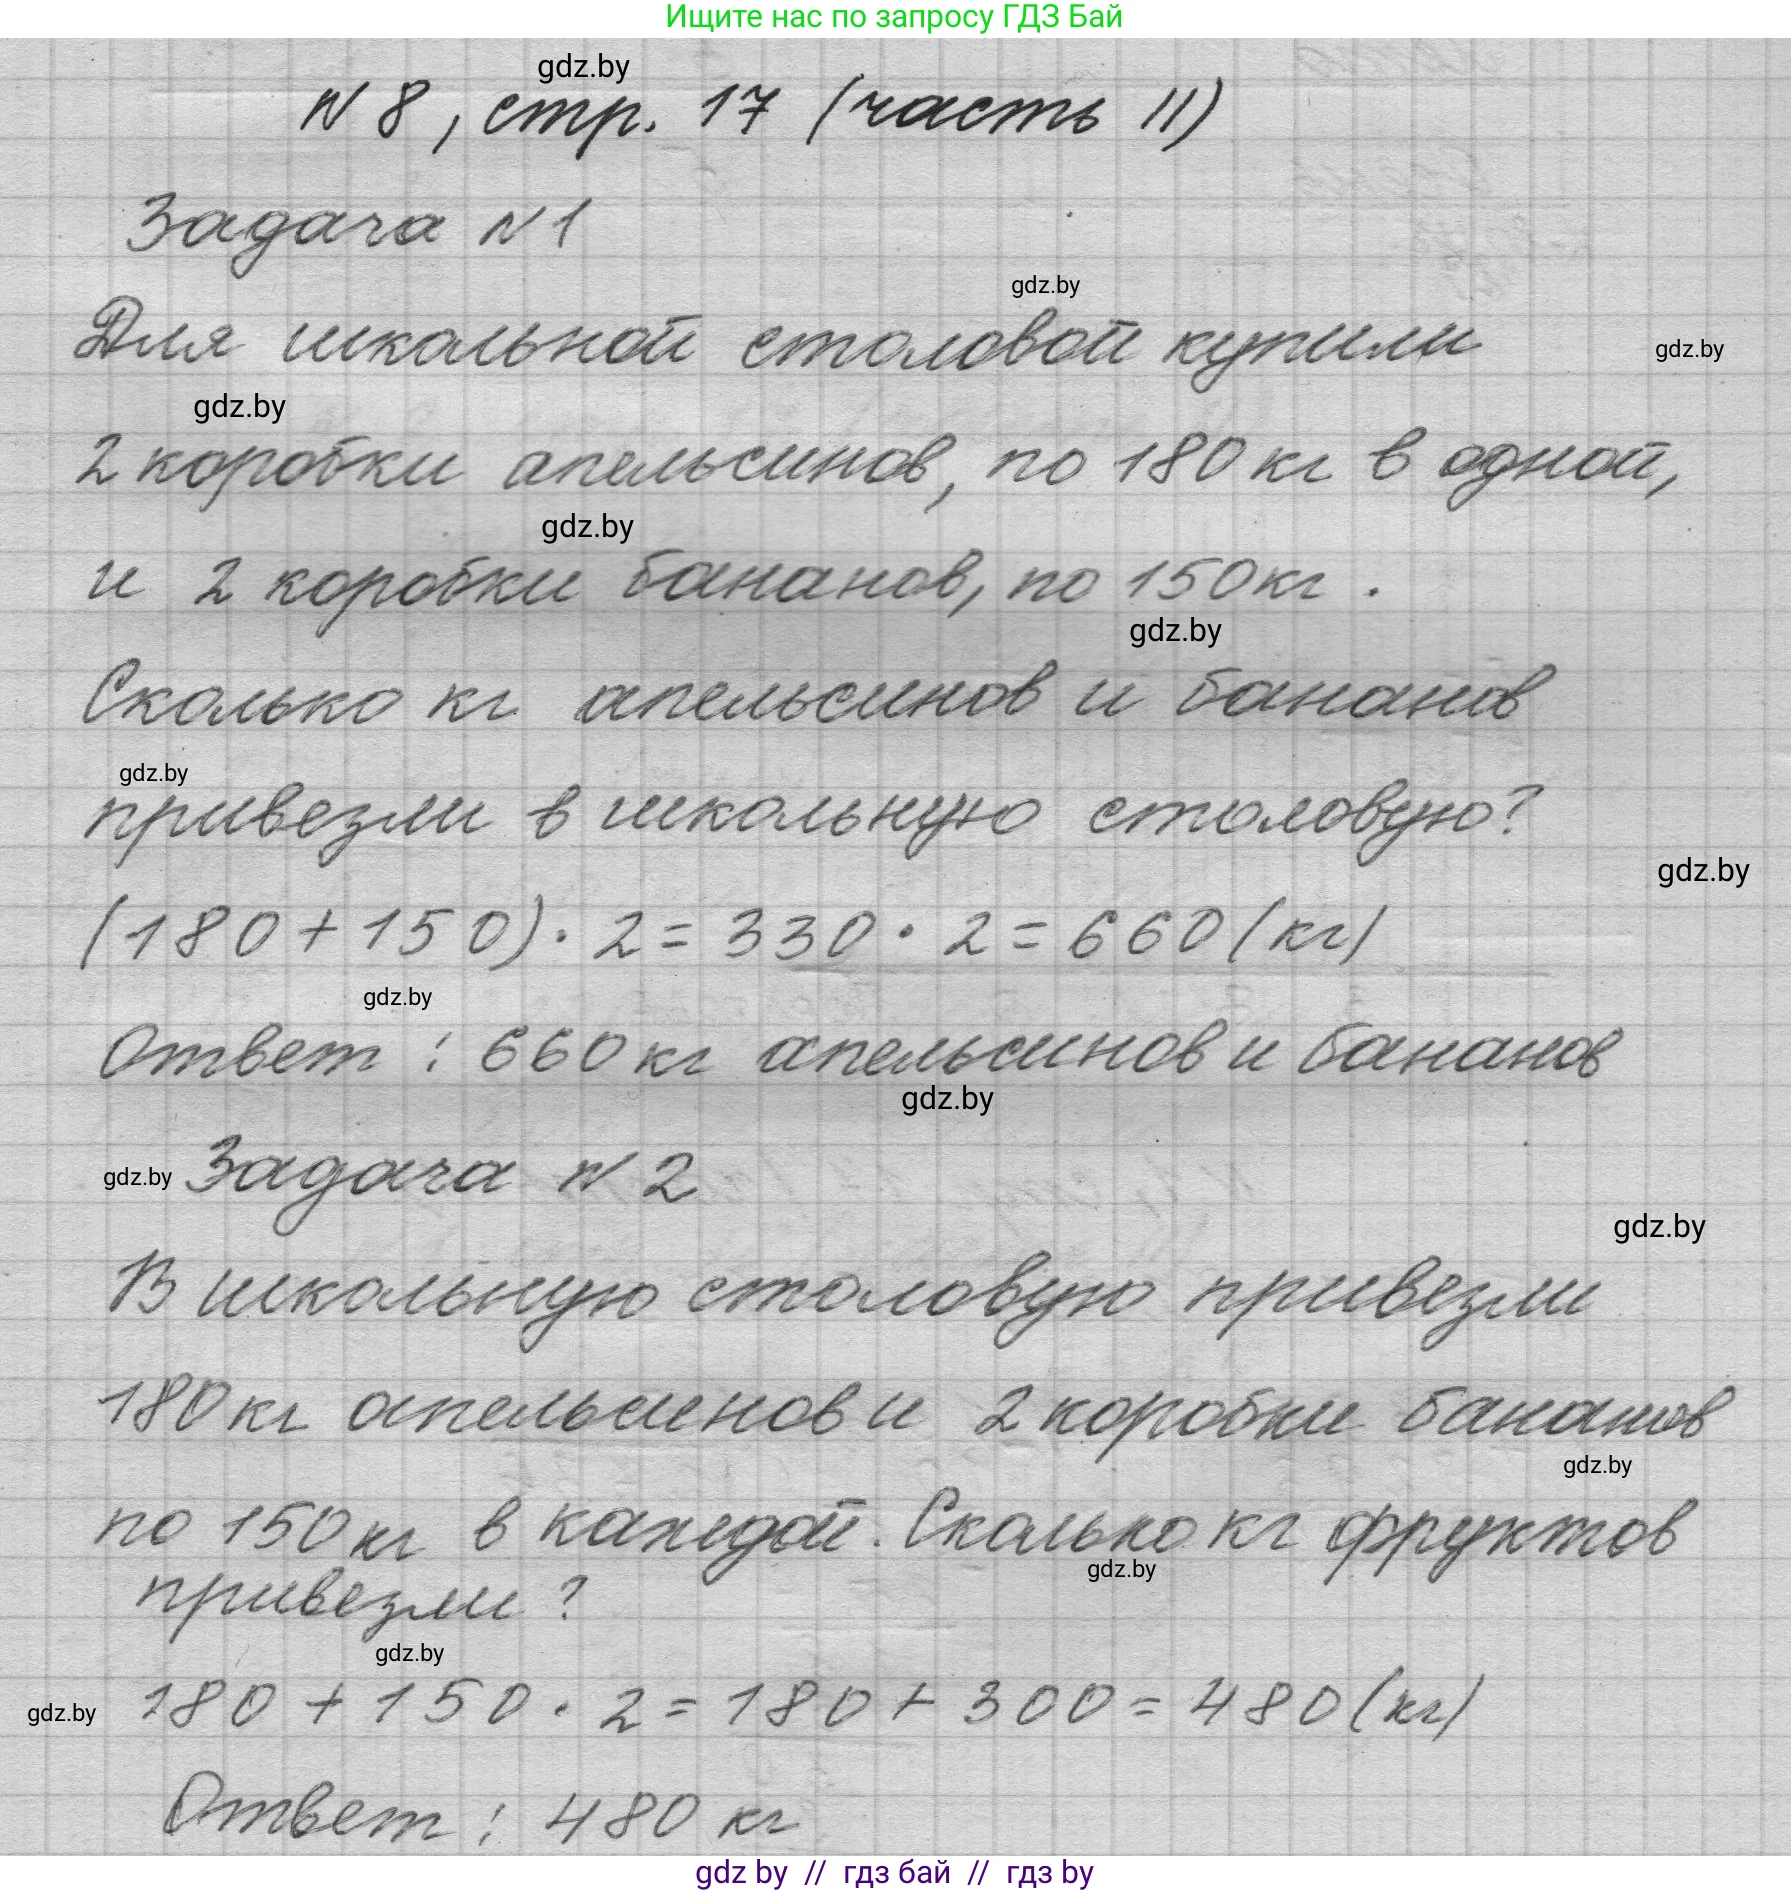 Ищите нас по запросу ГДЗ Бай
gdz.by
N 8, стр. 17 (часть II)
Задача N 1
gdz.by
Для школьной столовой купили
gdz.by
gdz.by
2 коробки апельсинов, по 180 кг в одной,
gdz.by
и 2 коробки бананов, по 150 кг.
gdz.by
Сколько кг апельсинов и бананов
gdz.by
привезли в школьную столовую?
gdz.by
(180 + 150) · 2 = 330 · 2 = 660 (кг)
gdz.by
Ответ : 660 кг апельсинов и бананов
gdz.by
gdz.by Задача N 2
gdz.by
В школьную столовую привезли
180 кг апельсинов и 2 коробки бананов
gdz.by
по 150 кг в каждой. Сколько кг фруктов
gdz.by
привезли ?
gdz.by
gdz.by 180 + 150 · 2 = 180 + 300 = 480 (кг)
Ответ : 480 кг
gdz by // гдз бай // гдз by